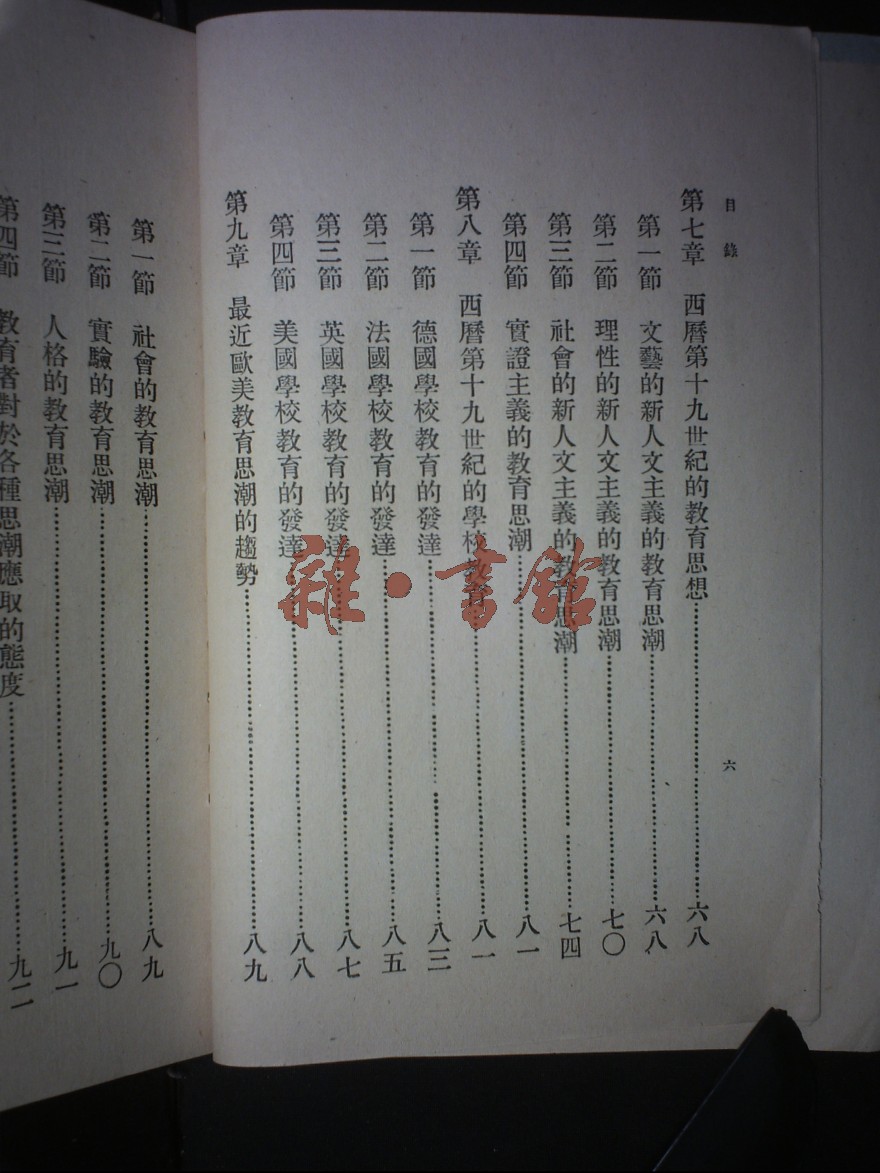 目錄
六
第七章 西曆第十九世紀的教育思想……六八
第一節 文藝的新人文主義的教育思潮……六八
第二節 理性的新人文主義的教育思潮……七〇
第三節 社會的新人文主義的教育思潮……七四
第四節 實證主義的教育思潮……八一
第八章 西曆第十九世紀的學校教育……八一
第一節 德國學校教育的發達……八三
第二節 法國學校教育的發達……八五
第三節 英國學校教育的發達……八七
第四節 美國學校教育的發達……八八
第九章 最近歐美教育思潮的趨勢……八九
第一節 社會的教育思潮……八九
第二節 實驗的教育思潮……九〇
第三節 人格的教育思潮……九一
第四節 教育者對於各種思潮應取的態度……九二
雜·書館